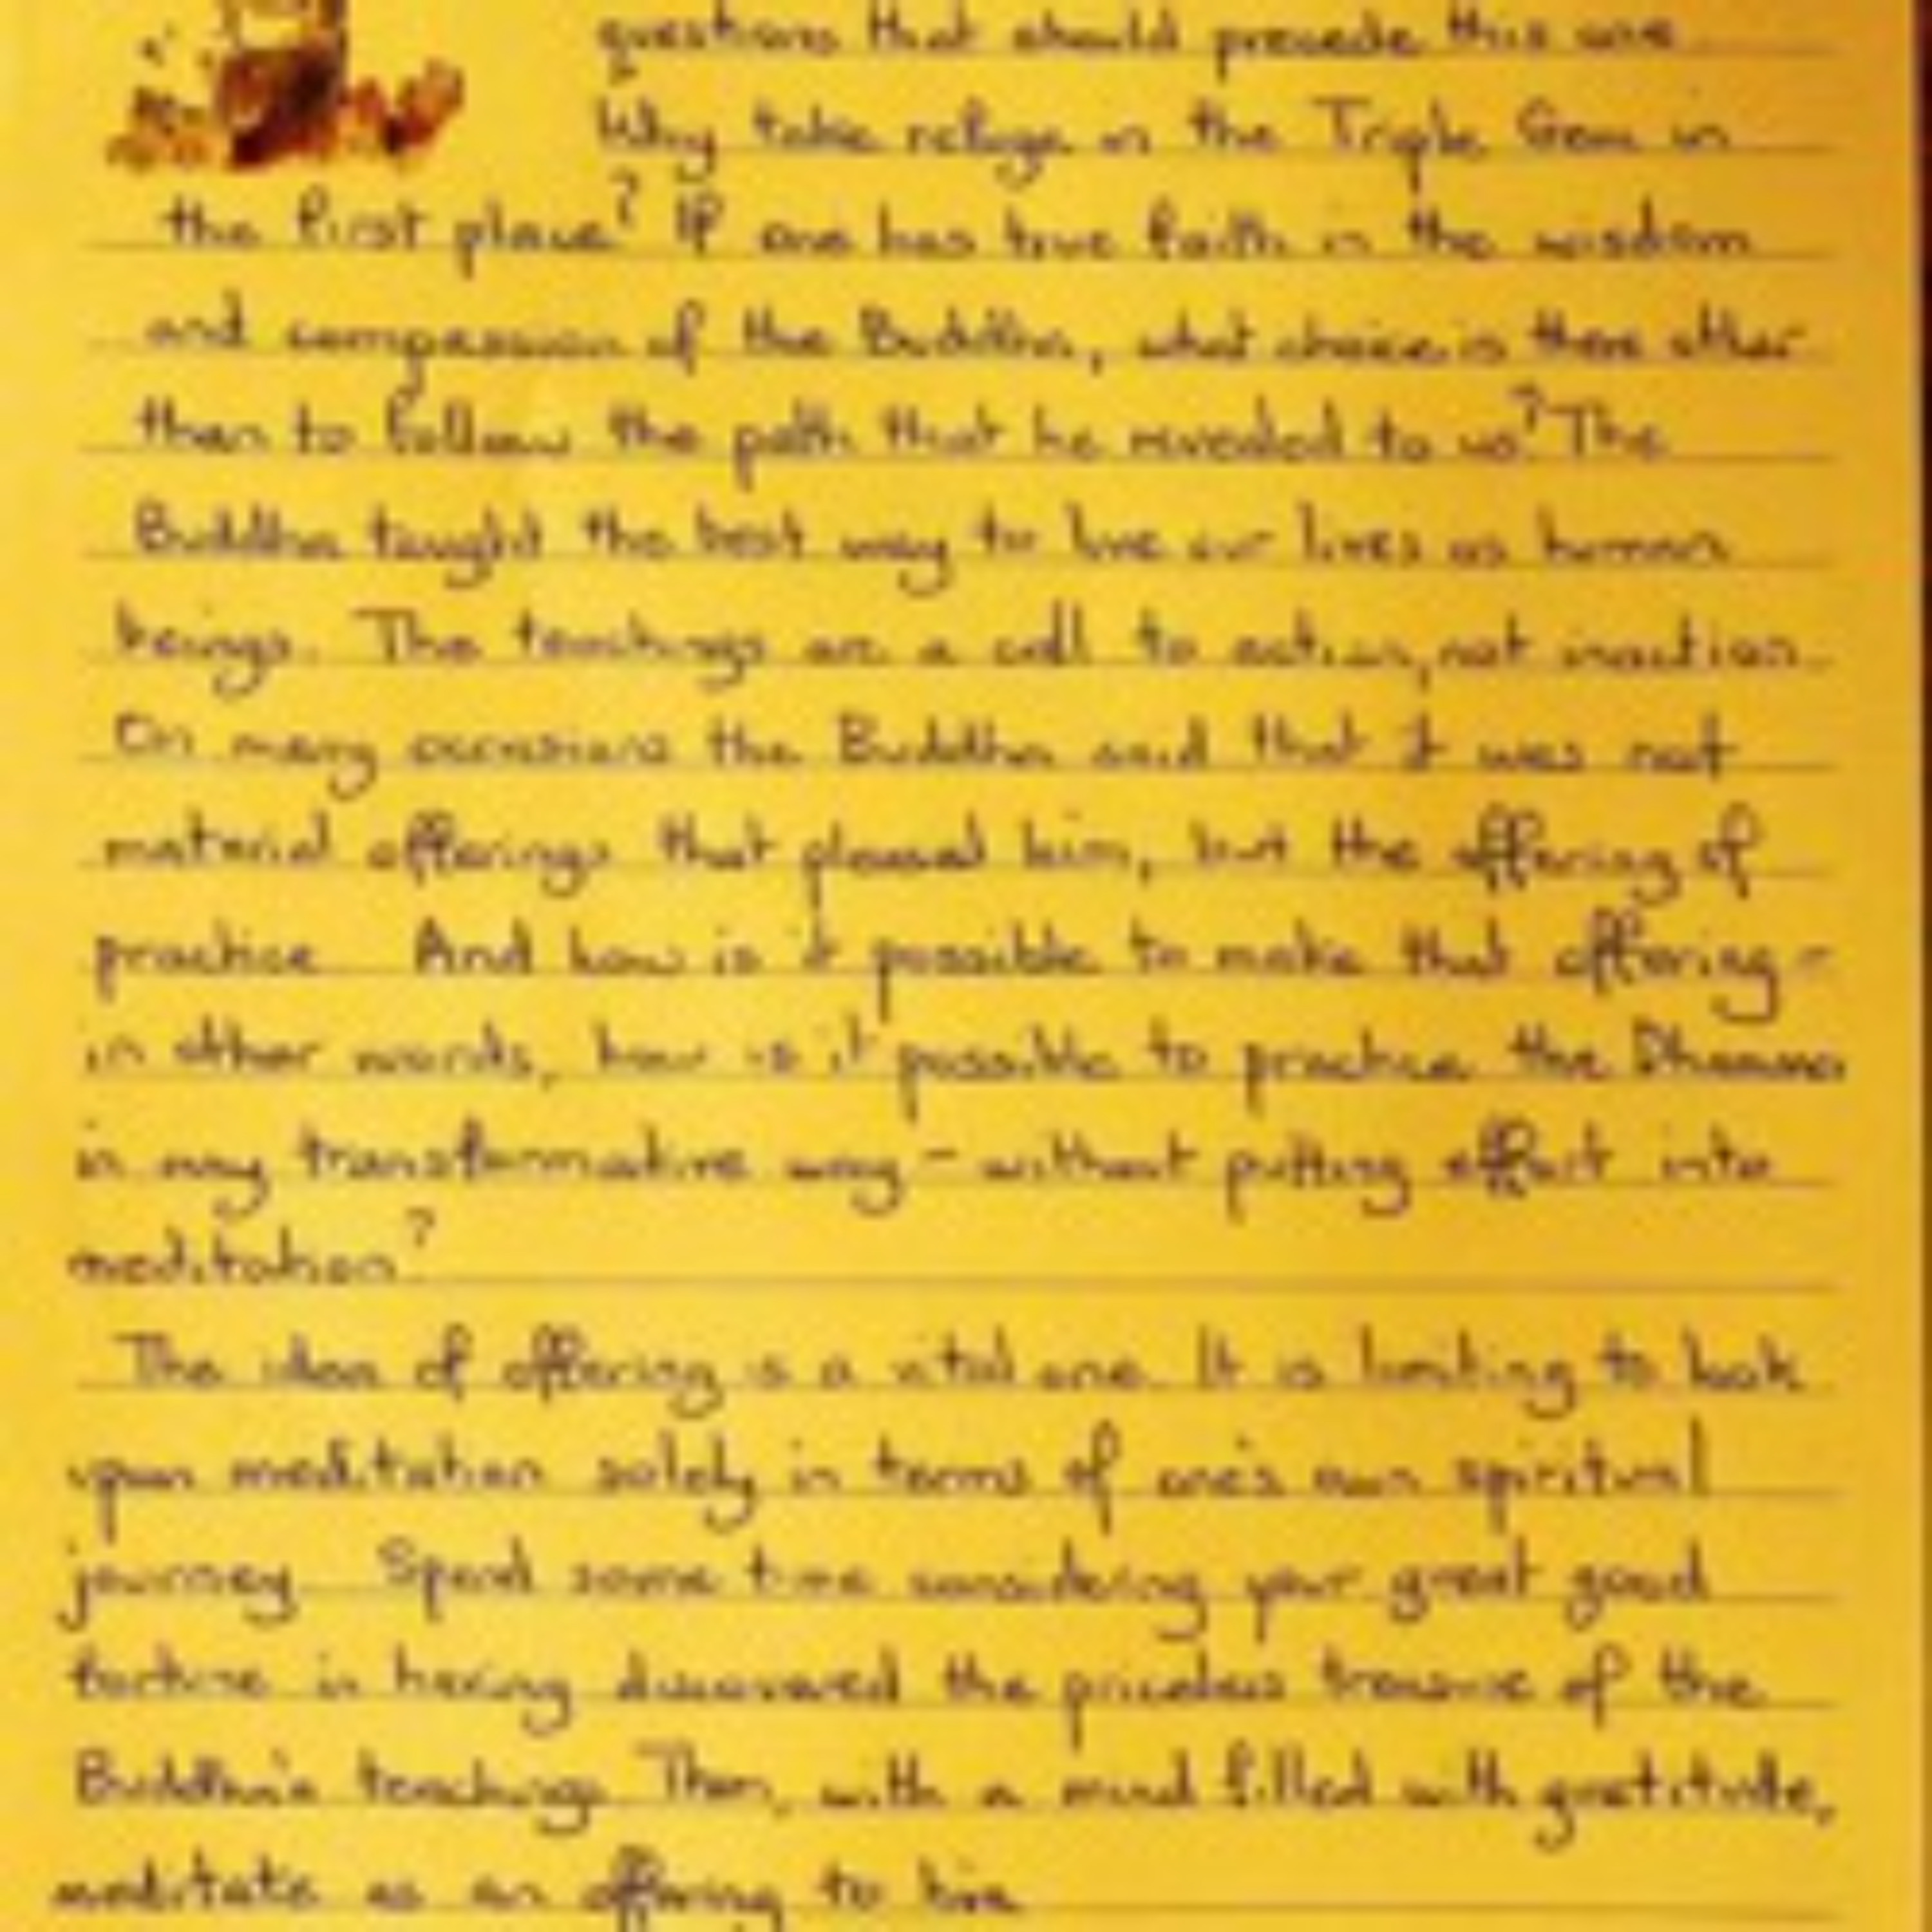 questions that should precede this one
Why take refuge in the Triple Gem in
the first place? If one has true faith in the wisdom
and compassion of the Buddha, what choice is there other
than to follow the path that he revealed to us? The
Buddha taught the best way to live our lives as human
beings. The teachings are a call to action, not inaction.
On many occasions the Buddha said that it was not
material offerings that pleased him, but the offering of
practice. And how is it possible to make that offering -
in other words, how is it possible to practice the Dhamma
in any transformative way - without putting effort into
meditation?
The idea of offering is a vital one. It is limiting to look
upon meditation solely in terms of one's own spiritual
journey. Spend some time considering your great good
fortune in having discovered the priceless treasure of the
Buddha's teachings. Then, with a mind filled with gratitude,
meditate as an offering to him